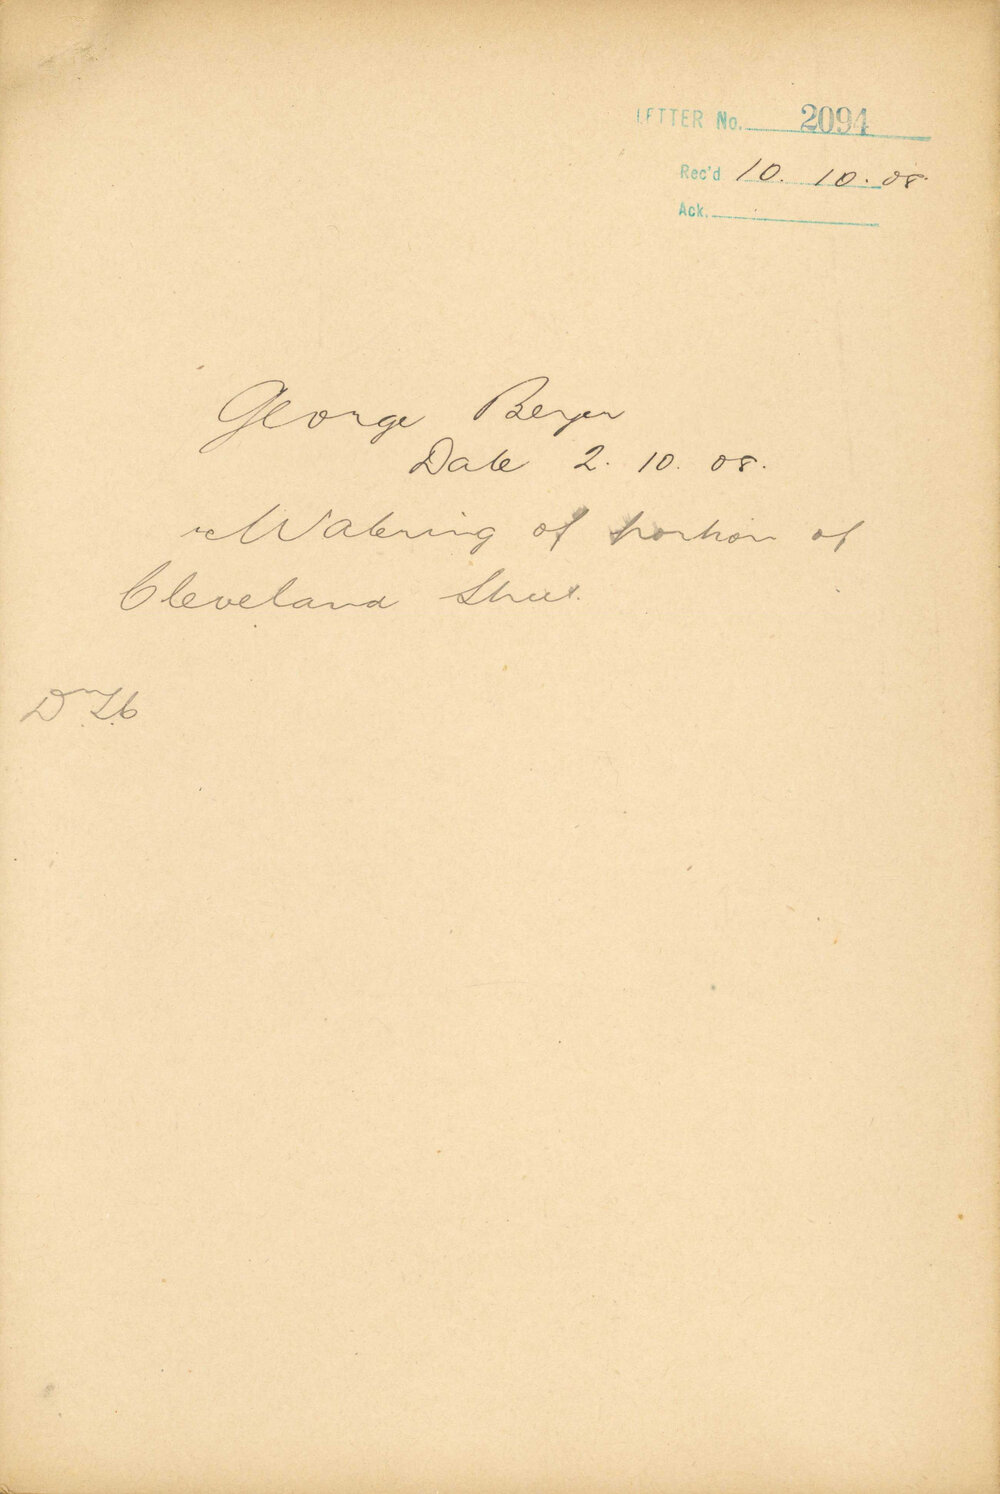 LETTER No. 2094
Rec'd 10. 10. 08.
Ack.
George Beyer
Date 2. 10. 08.
re Watering of portion of
Cleveland Street.